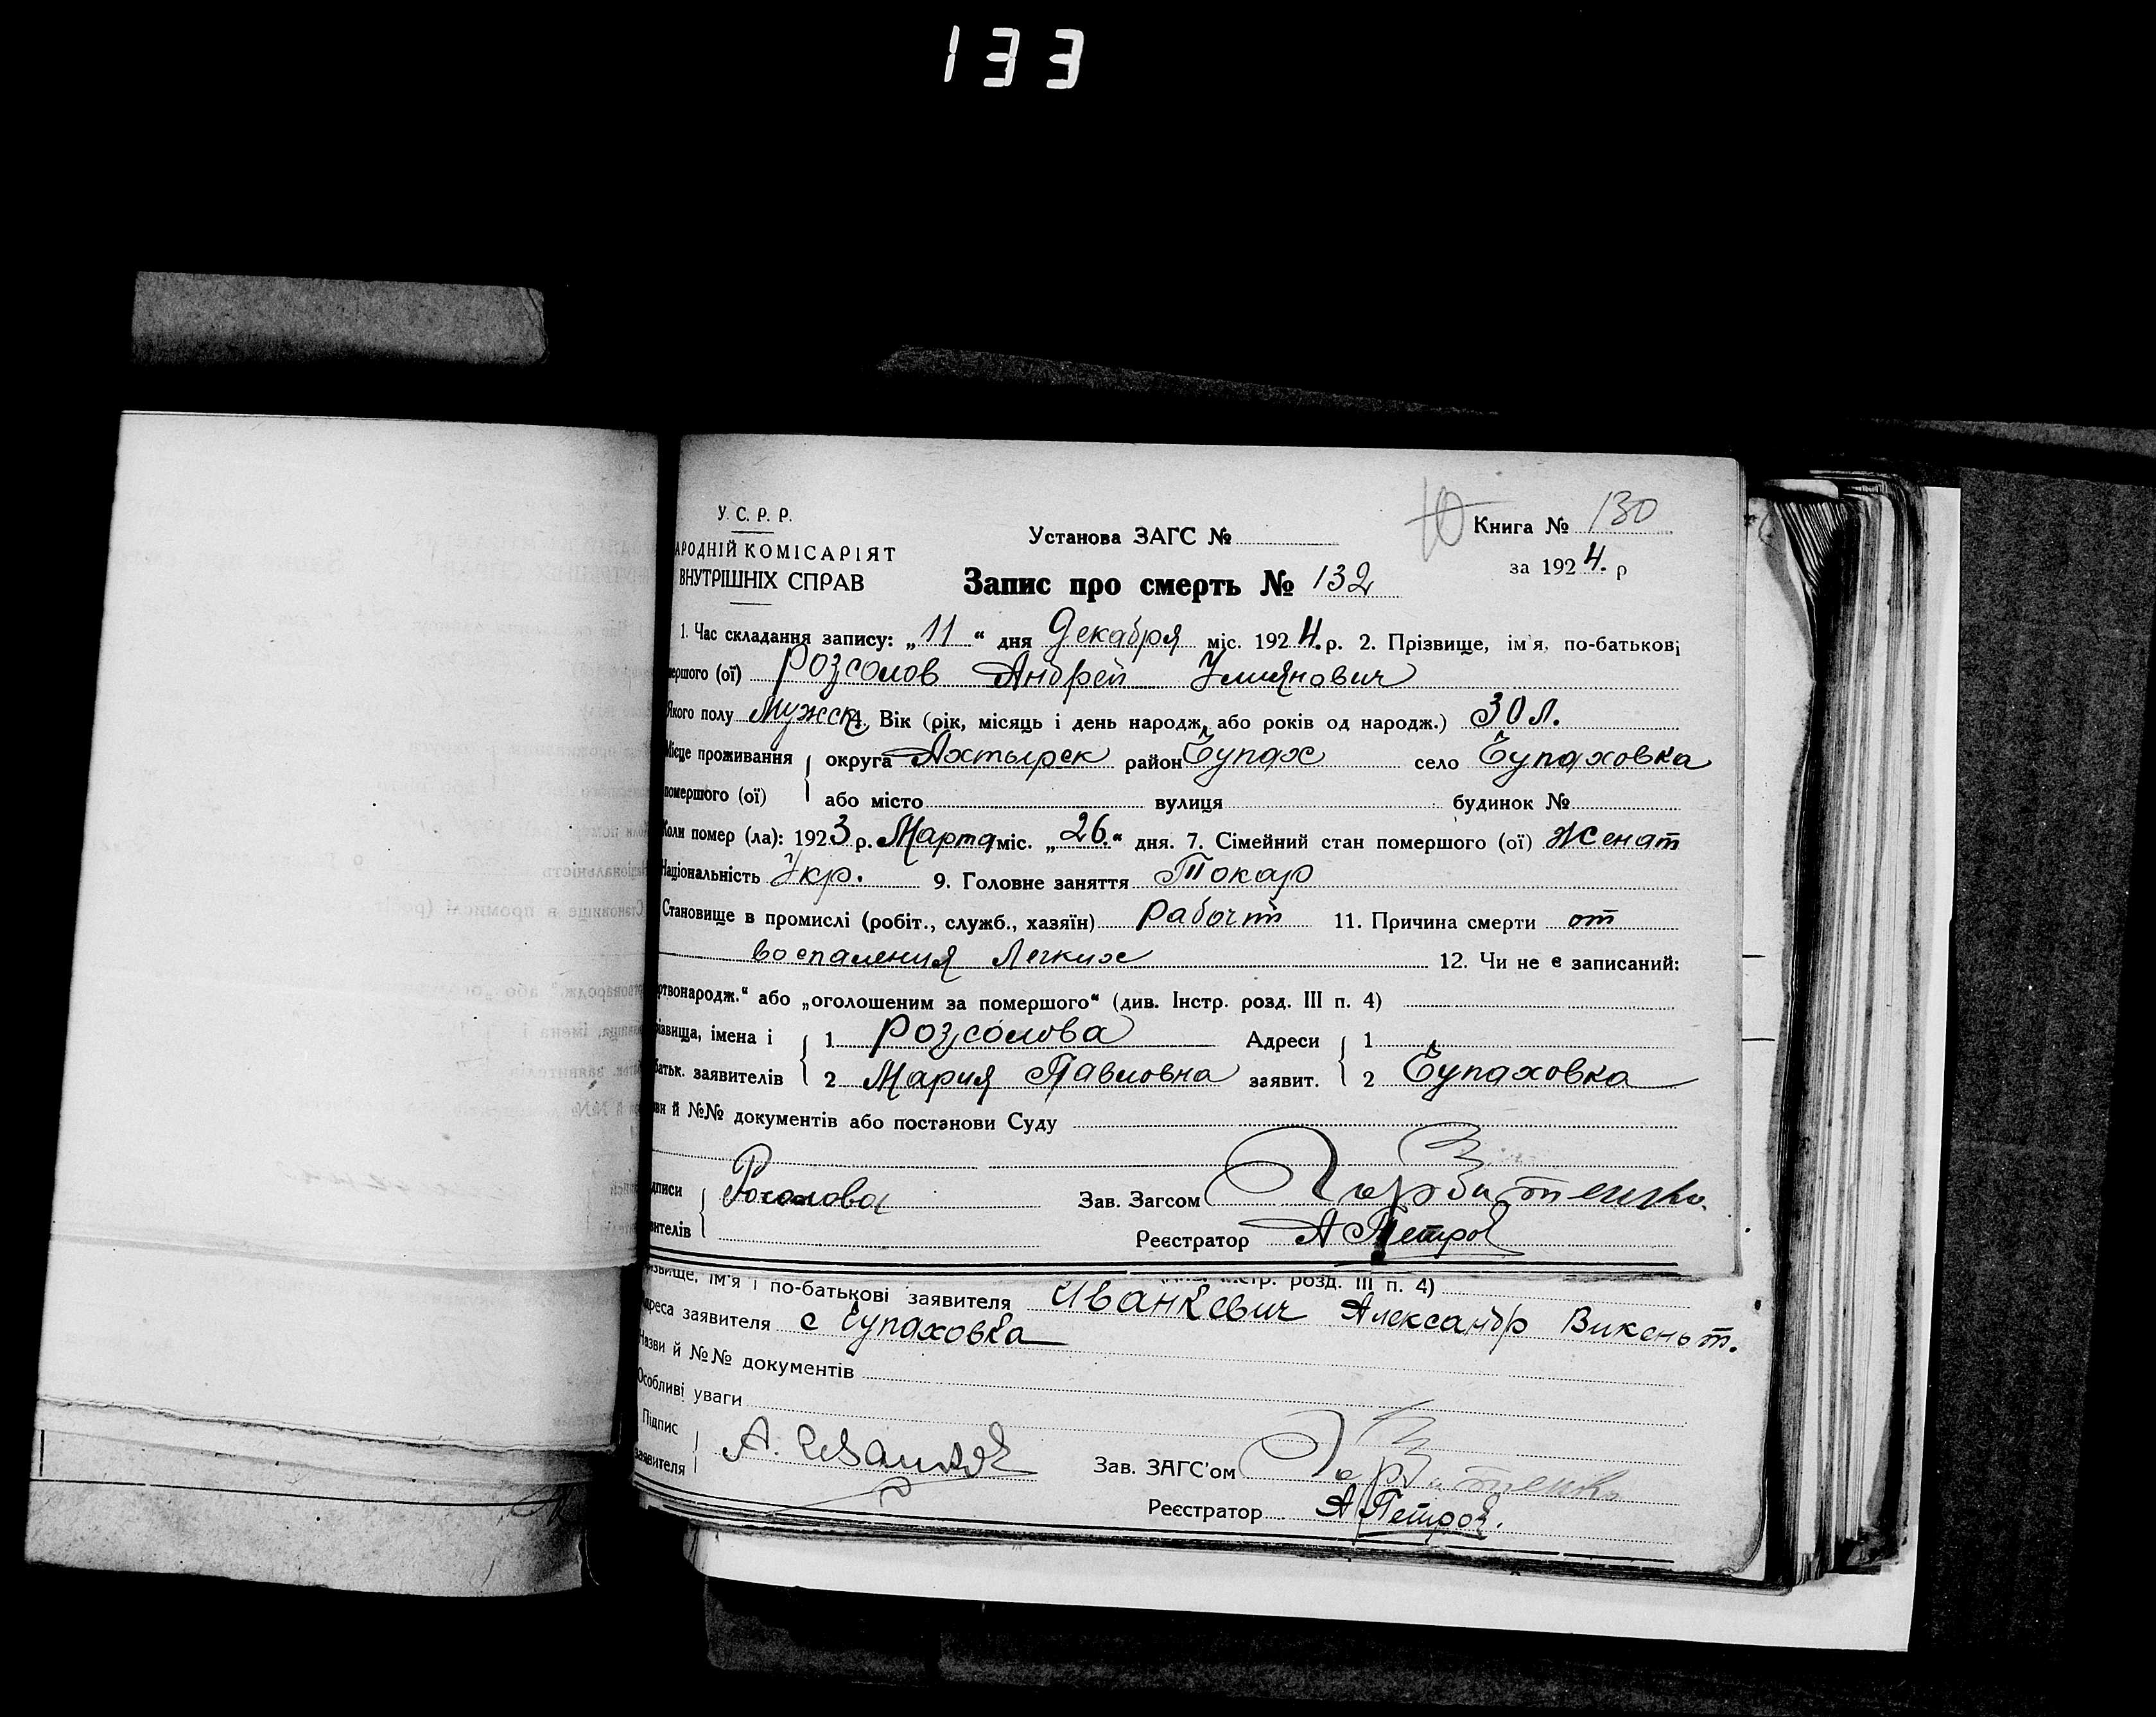 133
У. С. Р. Р.
АРОДНІЙ КОМІСАРІЯТ
ВНУТРІШНІХ СПРАВ
Установа ЗАГС №
Ю Книга № 130
за 1924. р
Запис про смерть № 132
1. Час складання запису: „11“ дня Декабря міс. 1924. р. 2. Прізвище, ім'я, по-батькові
мершого (ої) Розсолов Андрей
Якого полу Мужск 4. Вік (рік, місяць і день народж, або років од народж.) 30 л.
Місце проживання округа Ахтырск район Чупах село Чупаховка
помершого (ої) або місто вулиця будинок №
Коли помер (ла): 1923 р. Марта міс. „26.“ дня. 7. Сімейний стан помершого (ої) Женат
Національність Укр. 9. Головне заняття Токар
Становище в промислі (робіт., служб., хазяїн) 11. Причина смерти от
воспаления Легких 12. Чи не є записаний:
ртвонародж.“ або „оголошеним за помершого“ (див. Інстр. розд. III п. 4)
ізвища, імена і 1 Розсолова Адреси 1
батьк. заявителів 2 Мария Павловна заявит. 2 Чупаховка
ви й №№ документів або постанови Суду
дписи Розсолова Зав. Загсом
вителів Реєстратор А Петров
ізвище, ім'я і по-батькові заявителя Иванкевич Александр Викеньт.
дреса заявителя с Чупаховка
Назви й №№ документів
Особливі уваги
Підпис
заявителя Зав. ЗАГС'ом
Реєстратор А Петров.